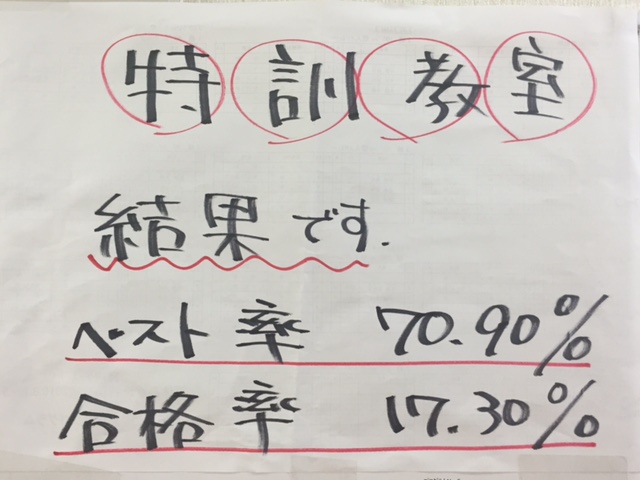 特訓教室
結果です.
ベスト率 70.90%
合格率 17.30%